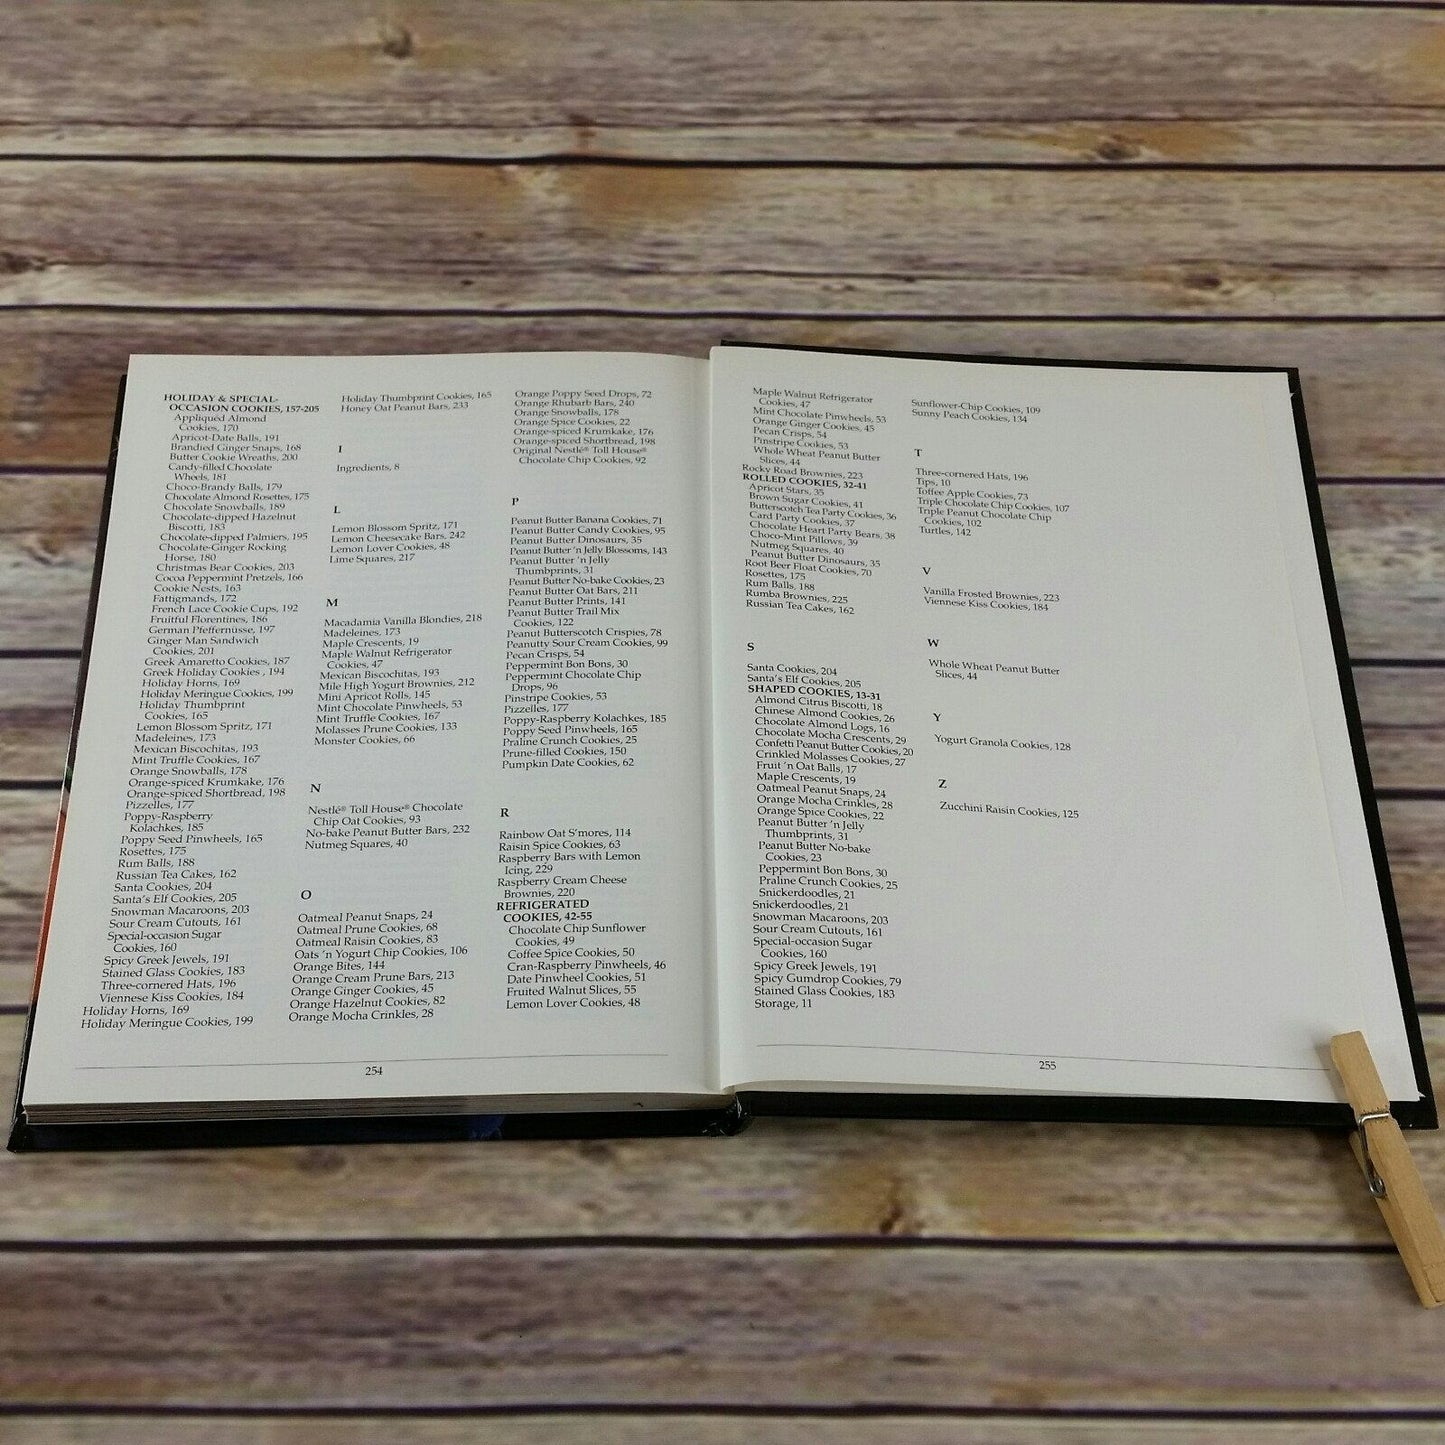 HOLIDAY & SPECIAL-
OCCASION COOKIES, 157-205
Appliquéd Almond
Cookies, 170
Apricot-Date Balls, 191
Brandied Ginger Snaps, 168
Butter Cookie Wreaths, 200
Candy-filled Chocolate
Wheels, 181
Choco-Brandy Balls, 179
Chocolate Almond Rosettes, 175
Chocolate Snowballs, 189
Chocolate-dipped Hazelnut
Biscotti, 183
Chocolate-dipped Palmiers, 195
Chocolate-Ginger Rocking
Horse, 180
Christmas Bear Cookies, 203
Cocoa Peppermint Pretzels, 166
Cookie Nests, 163
Fattigmands, 172
French Lace Cookie Cups, 192
Fruitful Florentines, 186
German Pfeffernüsse, 197
Ginger Man Sandwich
Cookies, 201
Greek Amaretto Cookies, 187
Greek Holiday Cookies , 194
Holiday Horns, 169
Holiday Meringue Cookies, 199
Holiday Thumbprint
Cookies, 165
Lemon Blossom Spritz, 171
Madeleines, 173
Mexican Biscochitas, 193
Mint Truffle Cookies, 167
Orange Snowballs, 178
Orange-spiced Krumkake, 176
Orange-spiced Shortbread, 198
Pizzelles, 177
Poppy-Raspberry
Kolachkes, 185
Poppy Seed Pinwheels, 165
Rosettes, 175
Rum Balls, 188
Russian Tea Cakes, 162
Santa Cookies, 204
Santa's Elf Cookies, 205
Snowman Macaroons, 203
Sour Cream Cutouts, 161
Special-occasion Sugar
Cookies, 160
Spicy Greek Jewels, 191
Stained Glass Cookies, 183
Three-cornered Hats, 196
Viennese Kiss Cookies, 184
Holiday Horns, 169
Holiday Meringue Cookies, 199
Holiday Thumbprint Cookies, 165
Honey Oat Peanut Bars, 233
I
Ingredients, 8
L
Lemon Blossom Spritz, 171
Lemon Cheesecake Bars, 242
Lemon Lover Cookies, 48
Lime Squares, 217
M
Macadamia Vanilla Blondies, 218
Madeleines, 173
Maple Crescents, 19
Maple Walnut Refrigerator
Cookies, 47
Mexican Biscochitas, 193
Mile High Yogurt Brownies, 212
Mini Apricot Rolls, 145
Mint Chocolate Pinwheels, 53
Mint Truffle Cookies, 167
Molasses Prune Cookies, 133
Monster Cookies, 66
N
Nestlé® Toll House® Chocolate
Chip Oat Cookies, 93
No-bake Peanut Butter Bars, 232
Nutmeg Squares, 40
O
Oatmeal Peanut Snaps, 24
Oatmeal Prune Cookies, 68
Oatmeal Raisin Cookies, 83
Oats 'n Yogurt Chip Cookies, 106
Orange Bites, 144
Orange Cream Prune Bars, 213
Orange Ginger Cookies, 45
Orange Hazelnut Cookies, 82
Orange Mocha Crinkles, 28
Orange Poppy Seed Drops, 72
Orange Rhubarb Bars, 240
Orange Snowballs, 178
Orange Spice Cookies, 22
Orange-spiced Krumkake, 176
Orange-spiced Shortbread, 198
Original Nestlé® Toll House®
Chocolate Chip Cookies, 92
P
Peanut Butter Banana Cookies, 71
Peanut Butter Candy Cookies, 95
Peanut Butter Dinosaurs, 35
Peanut Butter 'n Jelly Blossoms, 143
Peanut Butter 'n Jelly
Thumbprints, 31
Peanut Butter No-bake Cookies, 23
Peanut Butter Oat Bars, 211
Peanut Butter Prints, 141
Peanut Butter Trail Mix
Cookies, 122
Peanut Butterscotch Crispies, 78
Peanutty Sour Cream Cookies, 99
Pecan Crisps, 54
Peppermint Bon Bons, 30
Peppermint Chocolate Chip
Drops, 96
Pinstripe Cookies, 53
Pizzelles, 177
Poppy-Raspberry Kolachkes, 185
Poppy Seed Pinwheels, 165
Praline Crunch Cookies, 25
Prune-filled Cookies, 150
Pumpkin Date Cookies, 62
R
Rainbow Oat S'mores, 114
Raisin Spice Cookies, 63
Raspberry Bars with Lemon
Icing, 229
Raspberry Cream Cheese
Brownies, 220
REFRIGERATED
COOKIES, 42-55
Chocolate Chip Sunflower
Cookies, 49
Coffee Spice Cookies, 50
Cran-Raspberry Pinwheels, 46
Date Pinwheel Cookies, 51
Fruited Walnut Slices, 55
Lemon Lover Cookies, 48
254
Maple Walnut Refrigerator
Cookies, 47
Mint Chocolate Pinwheels, 53
Orange Ginger Cookies, 45
Pecan Crisps, 54
Pinstripe Cookies, 53
Whole Wheat Peanut Butter
Slices, 44
Rocky Road Brownies, 223
ROLLED COOKIES, 32-41
Apricot Stars, 35
Brown Sugar Cookies, 41
Butterscotch Tea Party Cookies, 36
Card Party Cookies, 37
Chocolate Heart Party Bears, 38
Choco-Mint Pillows, 39
Nutmeg Squares, 40
Peanut Butter Dinosaurs, 35
Root Beer Float Cookies, 70
Rosettes, 175
Rum Balls, 188
Rumba Brownies, 225
Russian Tea Cakes, 162
S
Santa Cookies, 204
Santa's Elf Cookies, 205
SHAPED COOKIES, 13-31
Almond Citrus Biscotti, 18
Chinese Almond Cookies, 26
Chocolate Almond Logs, 16
Chocolate Mocha Crescents, 29
Confetti Peanut Butter Cookies, 20
Crinkled Molasses Cookies, 27
Fruit 'n Oat Balls, 17
Maple Crescents, 19
Oatmeal Peanut Snaps, 24
Orange Mocha Crinkles, 28
Orange Spice Cookies, 22
Peanut Butter 'n Jelly
Thumbprints, 31
Peanut Butter No-bake
Cookies, 23
Peppermint Bon Bons, 30
Praline Crunch Cookies, 25
Snickerdoodles, 21
Snickerdoodles, 21
Snowman Macaroons, 203
Sour Cream Cutouts, 161
Special-occasion Sugar
Cookies, 160
Spicy Greek Jewels, 191
Spicy Gumdrop Cookies, 79
Stained Glass Cookies, 183
Storage, 11
Sunflower-Chip Cookies, 109
Sunny Peach Cookies, 134
T
Three-cornered Hats, 196
Tips, 10
Toffee Apple Cookies, 73
Triple Chocolate Chip Cookies, 107
Triple Peanut Chocolate Chip
Cookies, 102
Turtles, 142
V
Vanilla Frosted Brownies, 223
Viennese Kiss Cookies, 184
W
Whole Wheat Peanut Butter
Slices, 44
Y
Yogurt Granola Cookies, 128
Z
Zucchini Raisin Cookies, 125
255